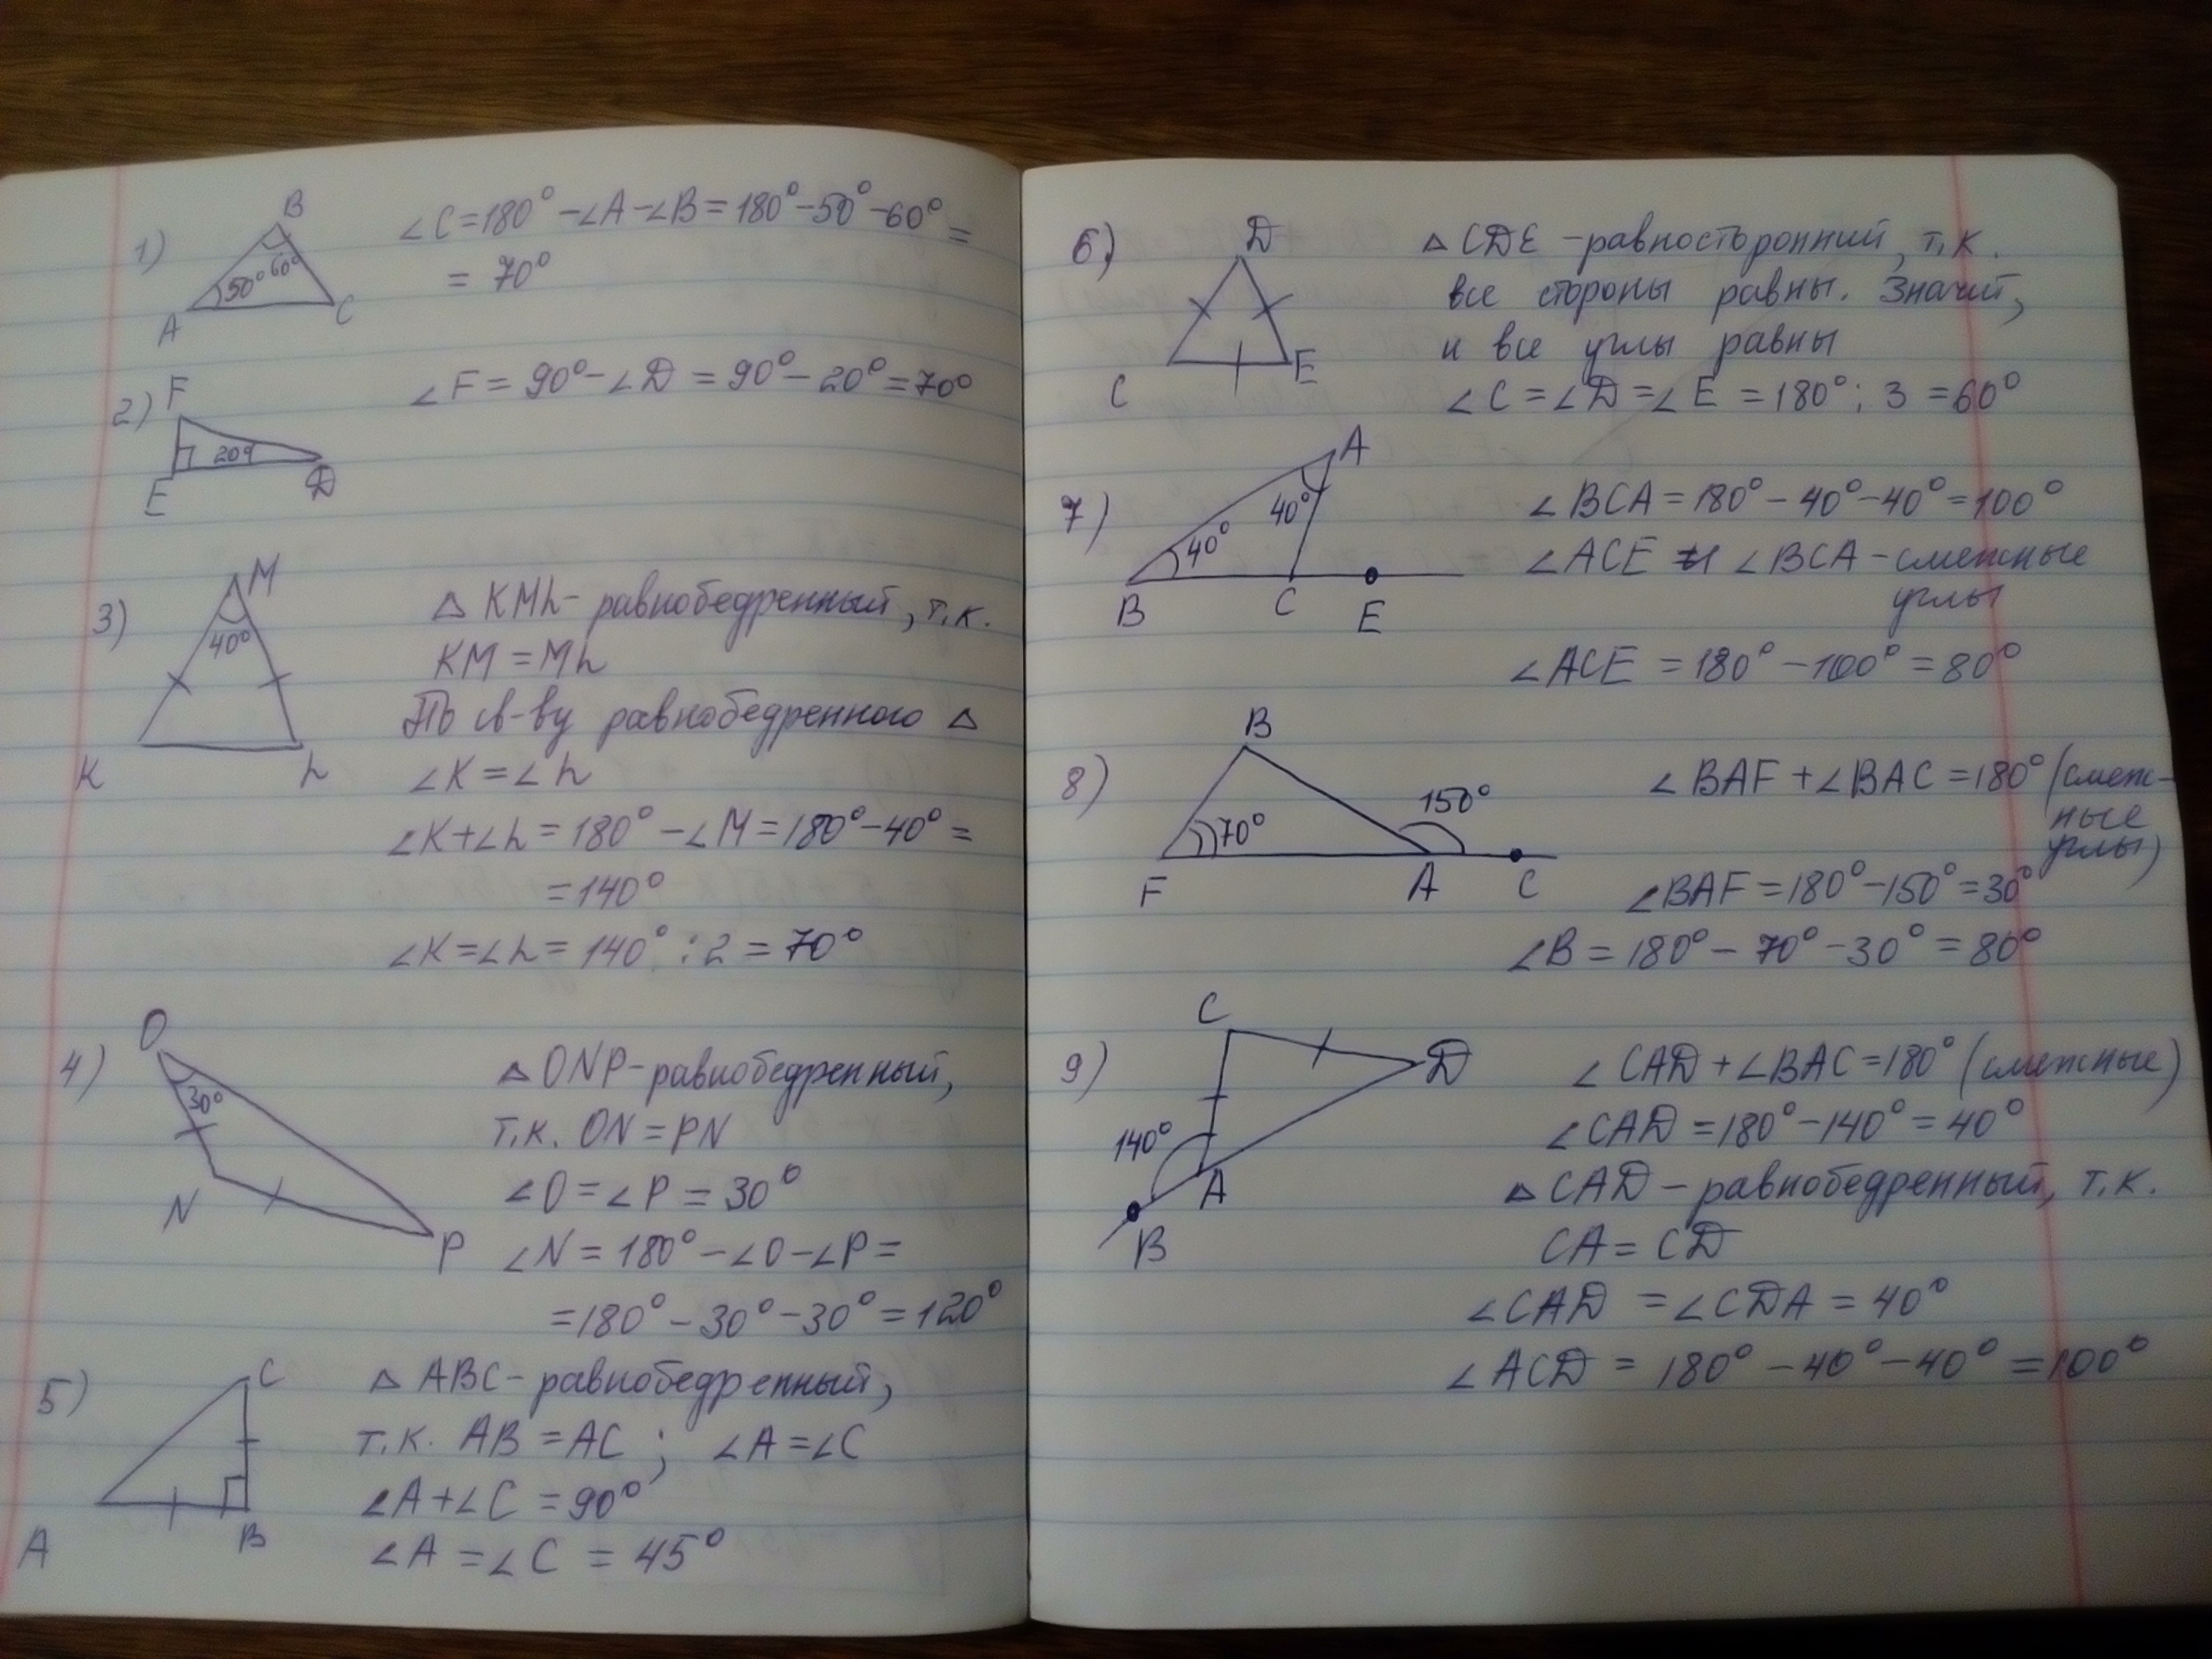 1) B ∠C = 180° - ∠A - ∠B = 180° - 50° - 60° =
50° 60° = 70°
A C
2) F ∠F = 90° - ∠D = 90° - 20° = 70°
20°
E D
3) M △ KML - равнобедренный, т.к.
40° KM = ML
По св-ву равнобедренного △
K L ∠K = ∠L
∠K + ∠L = 180° - ∠M = 180° - 40° =
= 140°
∠K = ∠L = 140° : 2 = 70°
4) O △ ONP - равнобедренный,
30° т.к. ON = PN
N ∠O = ∠P = 30°
P ∠N = 180° - ∠O - ∠P =
= 180° - 30° - 30° = 120°
5) C △ ABC - равнобедренный,
т.к. AB = AC ; ∠A = ∠C
∠A + ∠C = 90°
A B ∠A = ∠C = 45°
6) D △ CDE - равносторонний, т.к.
все стороны равны. Значит,
и все углы равны
C E ∠C = ∠D = ∠E = 180° : 3 = 60°
7) A ∠BCA = 180° - 40° - 40° = 100°
40° 40° ∠ACE и ∠BCA - смежные
B C E углы
∠ACE = 180° - 100° = 80°
8) B ∠BAF + ∠BAC = 180° (смеж-
70° 150° ные
углы)
F A C ∠BAF = 180° - 150° = 30°
∠B = 180° - 70° - 30° = 80°
9) C D ∠CAD + ∠BAC = 180° (смежные)
140° ∠CAD = 180° - 140° = 40°
A △ CAD - равнобедренный, т.к.
B CA = CD
∠CAD = ∠CDA = 40°
∠ACD = 180° - 40° - 40° = 100°